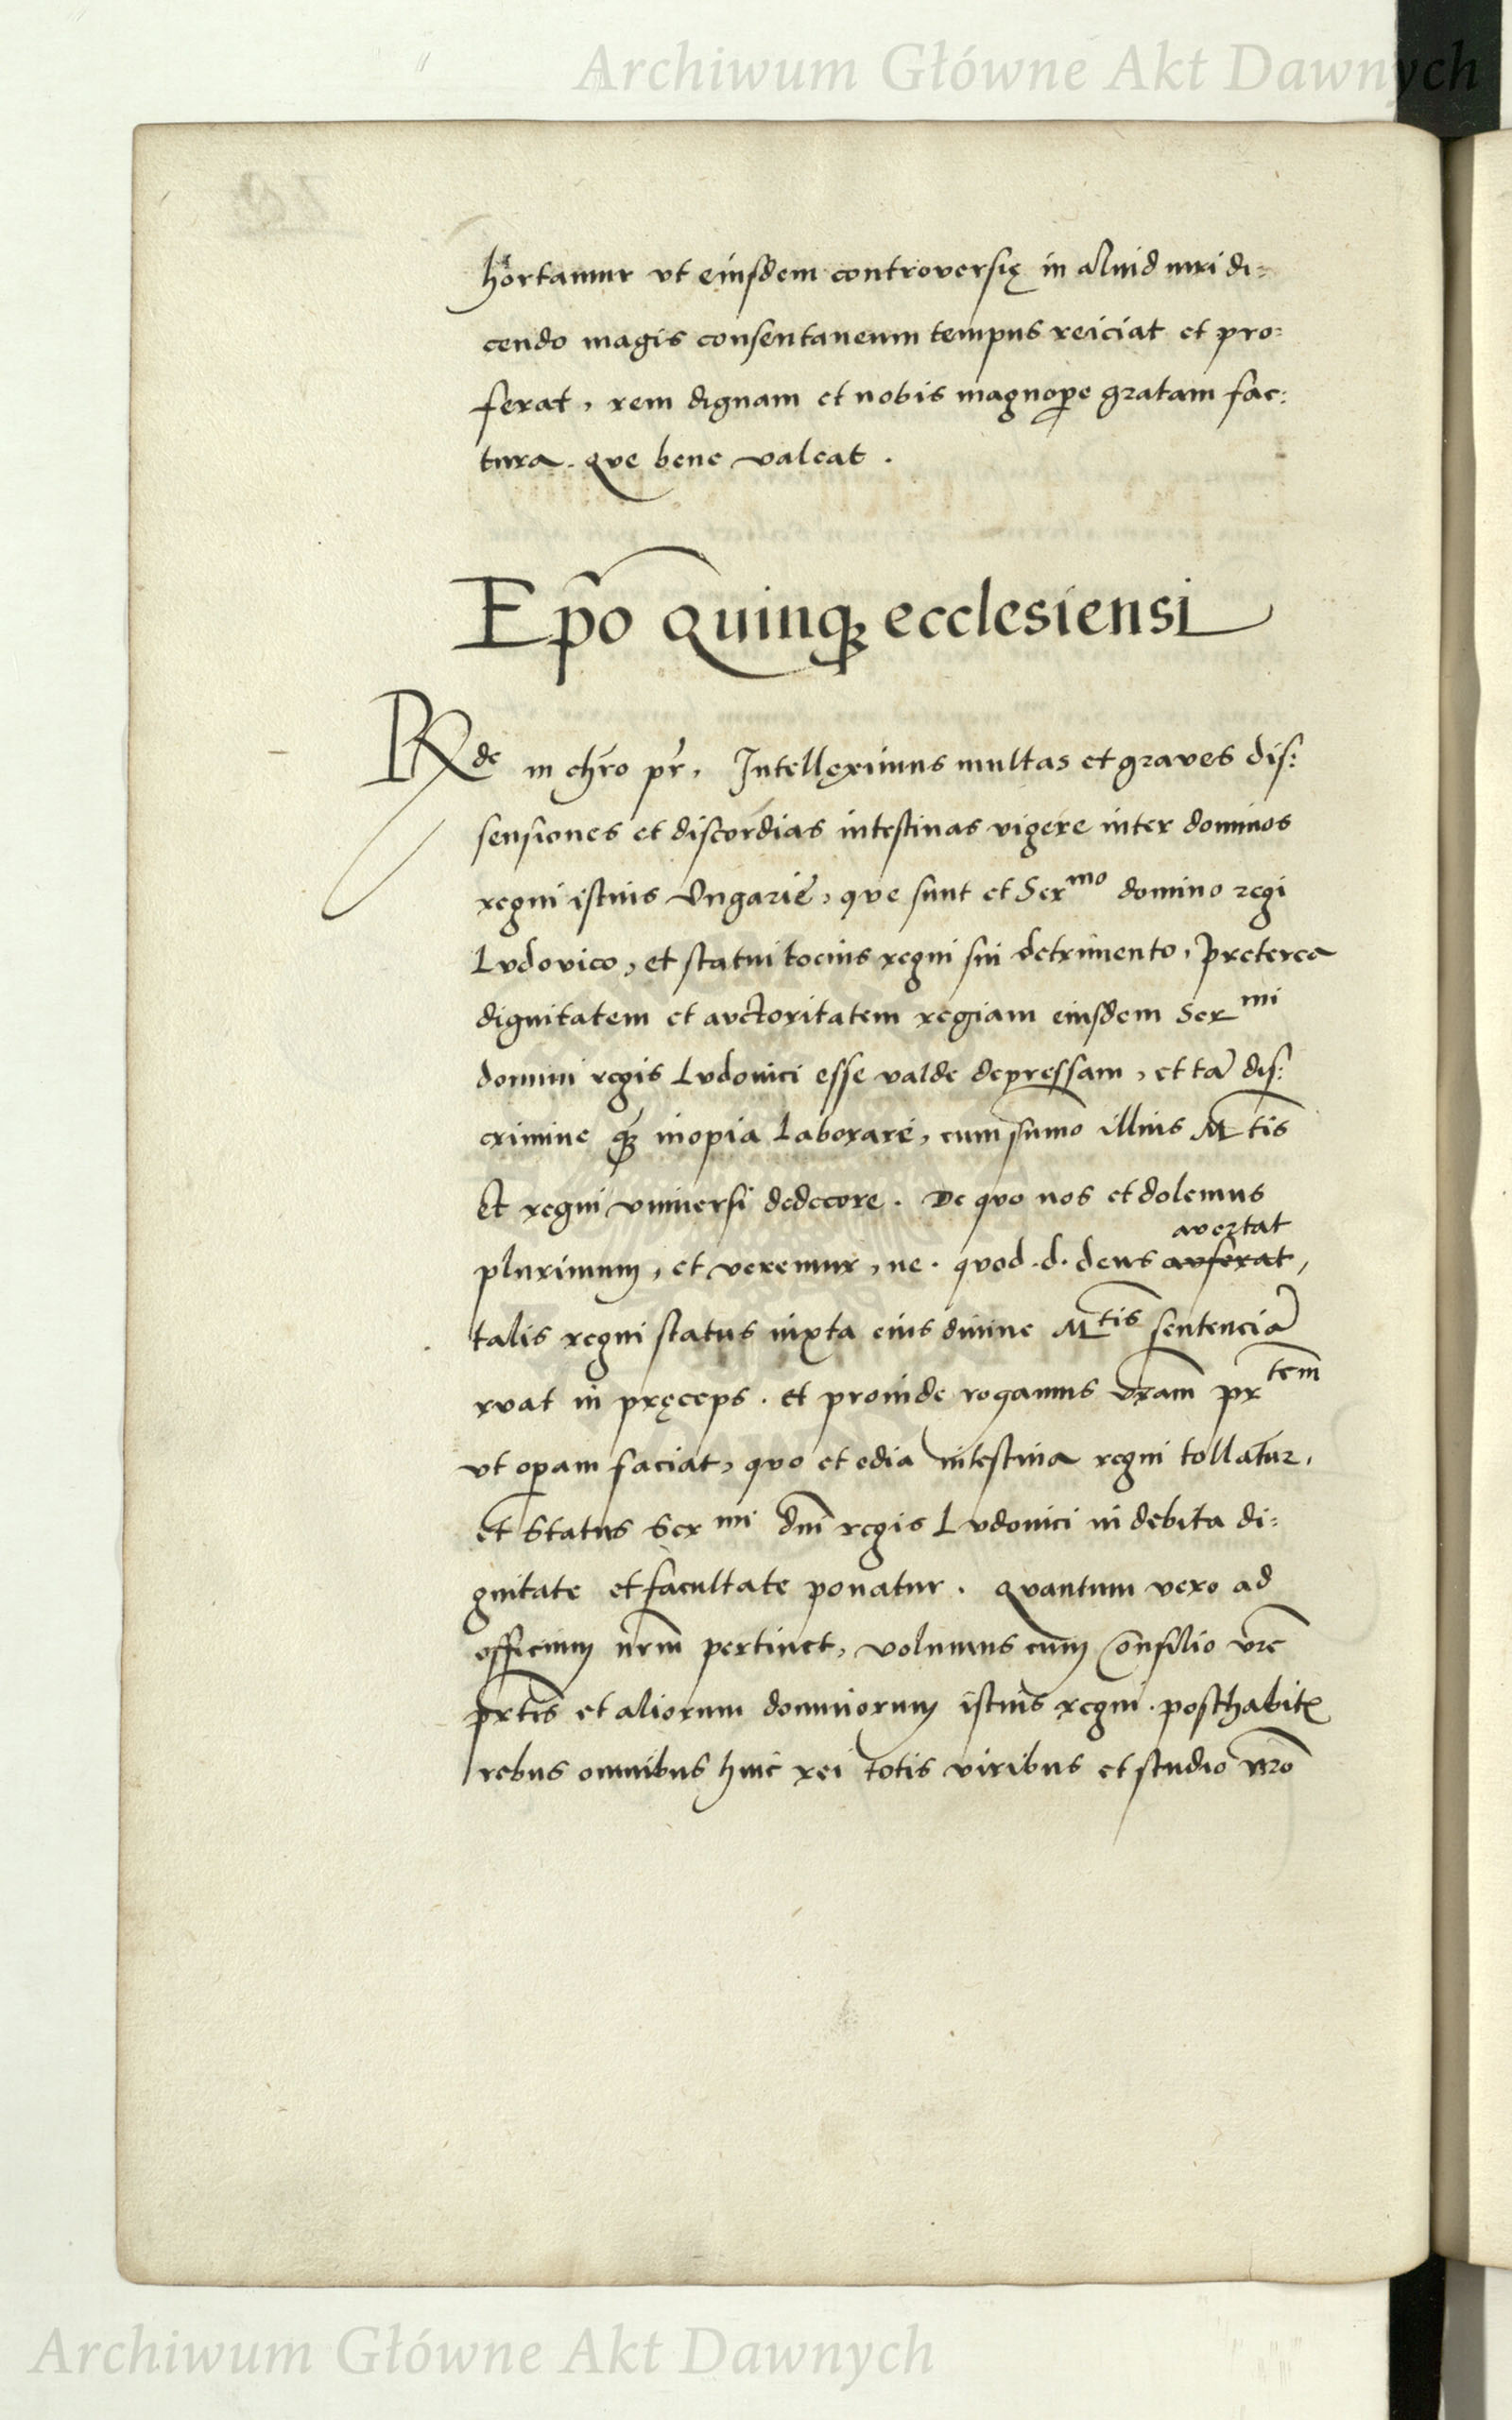 Archiwum Główne Akt Dawnych
hortamur vt eiusdem controversię in aliud iuri di=
cendo magis consentaneum tempus reiciat et pro=
ferat, rem dignam et nobis magnope gratam fac=
tura. que bene valeat.
Epo Quinq ecclesiensi
Rde in chro pr, Intelleximus multas et graves dis=
sensiones et discordias intestinas vigere inter dominos
regni istius Vngarie, que sunt et Sermo domino regi
Ludovico, et statui tocius regni sui detrimento, Preterea
dignitatem et auctoritatem regiam eiusdem Sermi
domini regis Ludovici esse valde depressam, et ta dis=
crimine q inopia laborare, cum sumo illius Mtis
Et regni vniversi dedecore. De quo nos et dolemus
avertat
plurimum, et veremur, ne. quod .d. deus auferat,
talis regni status iuxta eius divine Mtis sentencia
ruat in pręceps. et proinde rogamus vram prtem
vt opam faciat, quo et odia intestina regni tollatur,
et Status Sermi dni regis Ludovici in debita di=
gnitate et facultate ponatur. Quantum vero ad
officium nrm pertinet, volumus cum consilio vre
prtis et aliorum dominorum istius regni. posthabit
rebus omnibus huic rei totis viribus et studio nro
Archiwum Główne Akt Dawnych